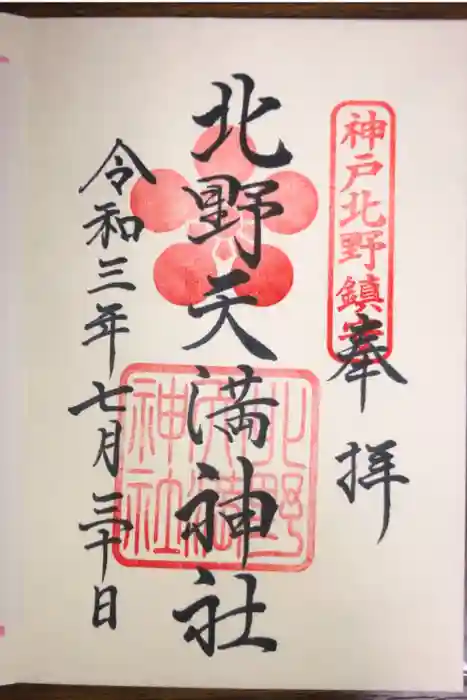 神戸北野鎮守
奉拝
北野天満神社
北野天満神社
令和三年七月三十日